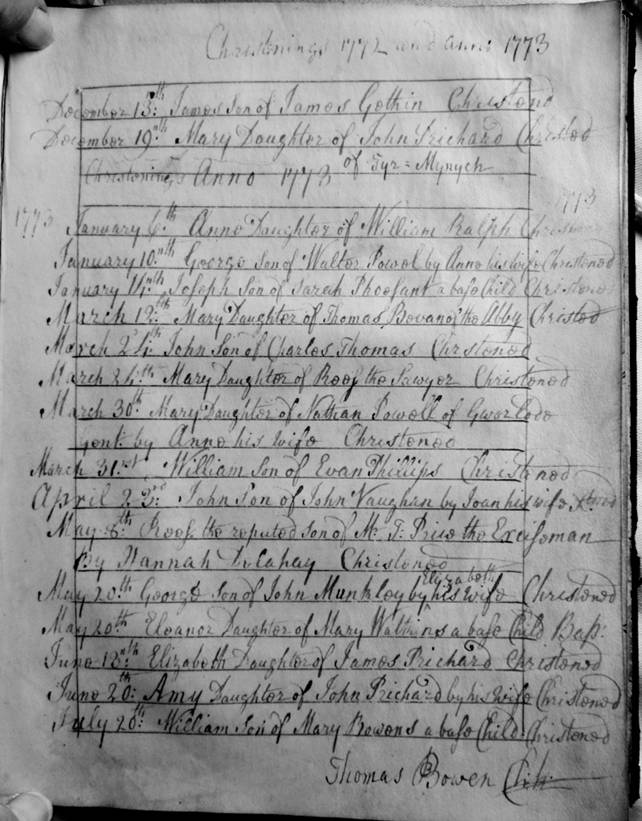 Christenings 1772 and Anno 1773
December 13th: James Son of James Gethin Christend
December 19th: Mary Daughter of John Prichard Christed
of Tyr=Mynych
Christenings Anno 1773
1773
1773 January 6th Anne Daughter of William Ralph Christened
January 10nth George Son of Walter Powel by Anne his wife Christened
January 14nth Joseph Son of Sarah a base Child Christened
March 12th Mary Daughter of Thomas Bevan of the Abby Christed
March 24th: John Son of Charles Thomas Chrstened
March 24th: Mary Daughter of Rees the Sawyer Christened
March 30th Mary Daughter of Nathan Powell of
gent: by Anne his wife Christened
March 31rst William Son of Evan Phillips Christened
April 23rd: John Son of John Vaughan by Joan his wife
May 6th Rees the reputed son of Mr. T: Price the Exciseman
By Hannah Christened
Elizabeth
May 20th George Son of John Munkley by his wife Christened
May 20th Eleanor Daughter of Mary Watkins a base Child Bap:
June 13nth: Elizabeth Daughter of James Prichard Christened
June 20: Amy Daughter of John Prichard by his wife Christened
July 20th: William Son of Mary Bowens a base Child Christened
Thomas Bowen Clik: